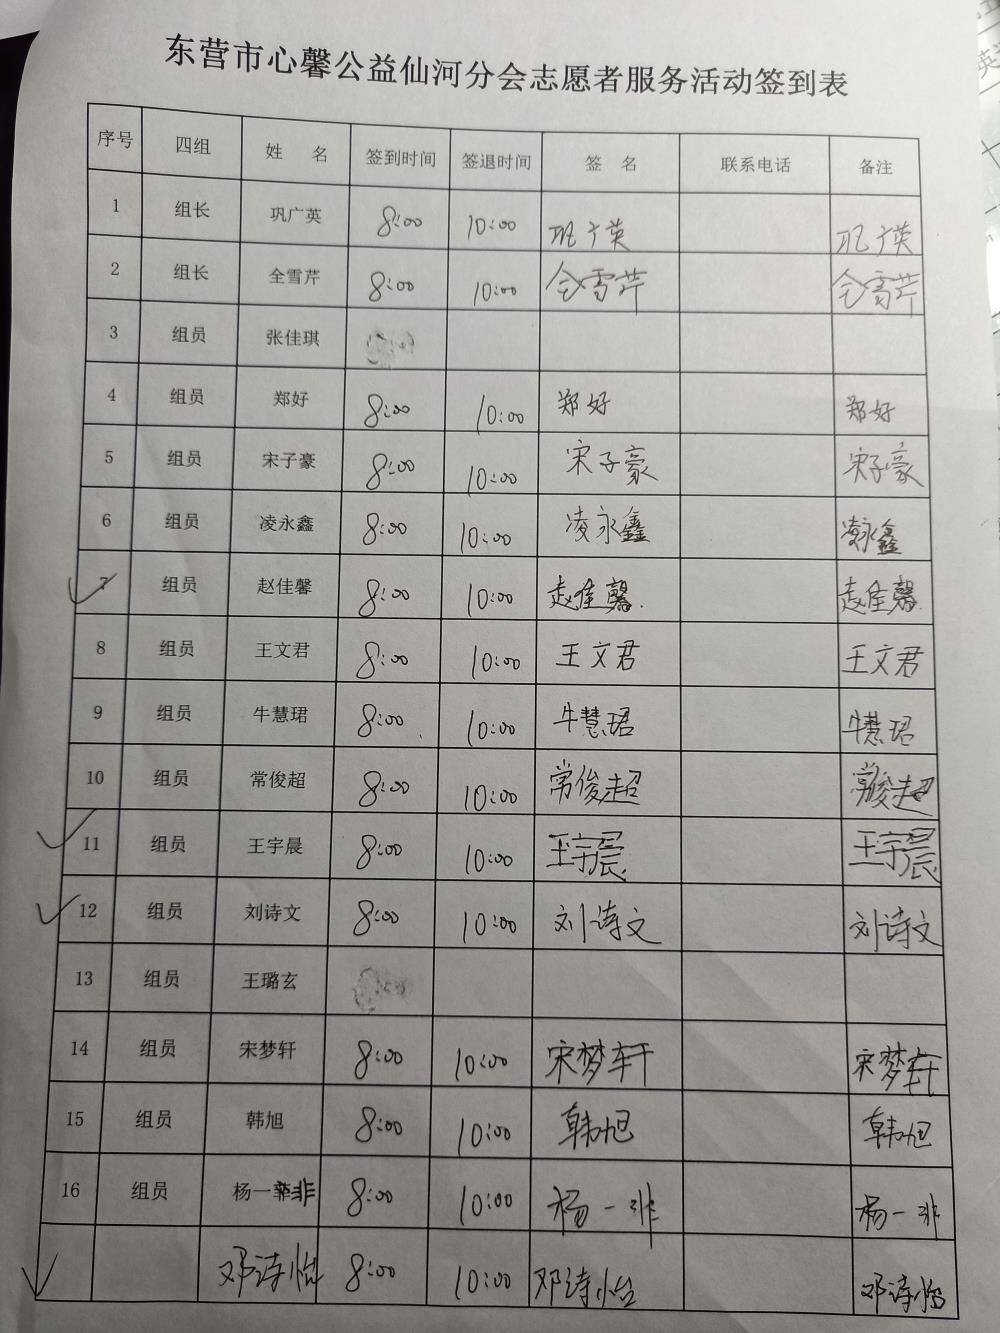 东营市心馨公益仙河分会志愿者服务活动签到表
序号 四组 姓 名 签到时间 签退时间 签 名 联系电话 备注
1 组长 巩广英 8:00 10:00 巩广英 巩广英
2 组长 全雪芹 8:00 10:00 全雪芹 全雪芹
3 组员 张佳琪
4 组员 郑好 8:00 10:00 郑好 郑好
5 组员 宋子豪 8:00 10:00 宋子豪 宋子豪
6 组员 凌永鑫 8:00 10:00 凌永鑫 凌永鑫
7 组员 赵佳馨 8:00 10:00 赵佳馨. 赵佳馨.
8 组员 王文君 8:00 10:00 王文君 王文君
9 组员 牛慧珺 8:00 10:00 牛慧珺 牛慧珺
10 组员 常俊超 8:00 10:00 常俊超 常俊超
11 组员 王宇晨 8:00 10:00 王宇晨 王宇晨
12 组员 刘诗文 8:00 10:00 刘诗文 刘诗文
13 组员 王璐玄
14 组员 宋梦轩 8:00 10:00 宋梦轩 宋梦轩
15 组员 韩旭 8:00 10:00 韩旭 韩旭
16 组员 杨一非 8:00 10:00 杨一非 杨一非
邓诗怡 8:00 10:00 邓诗怡 邓诗怡